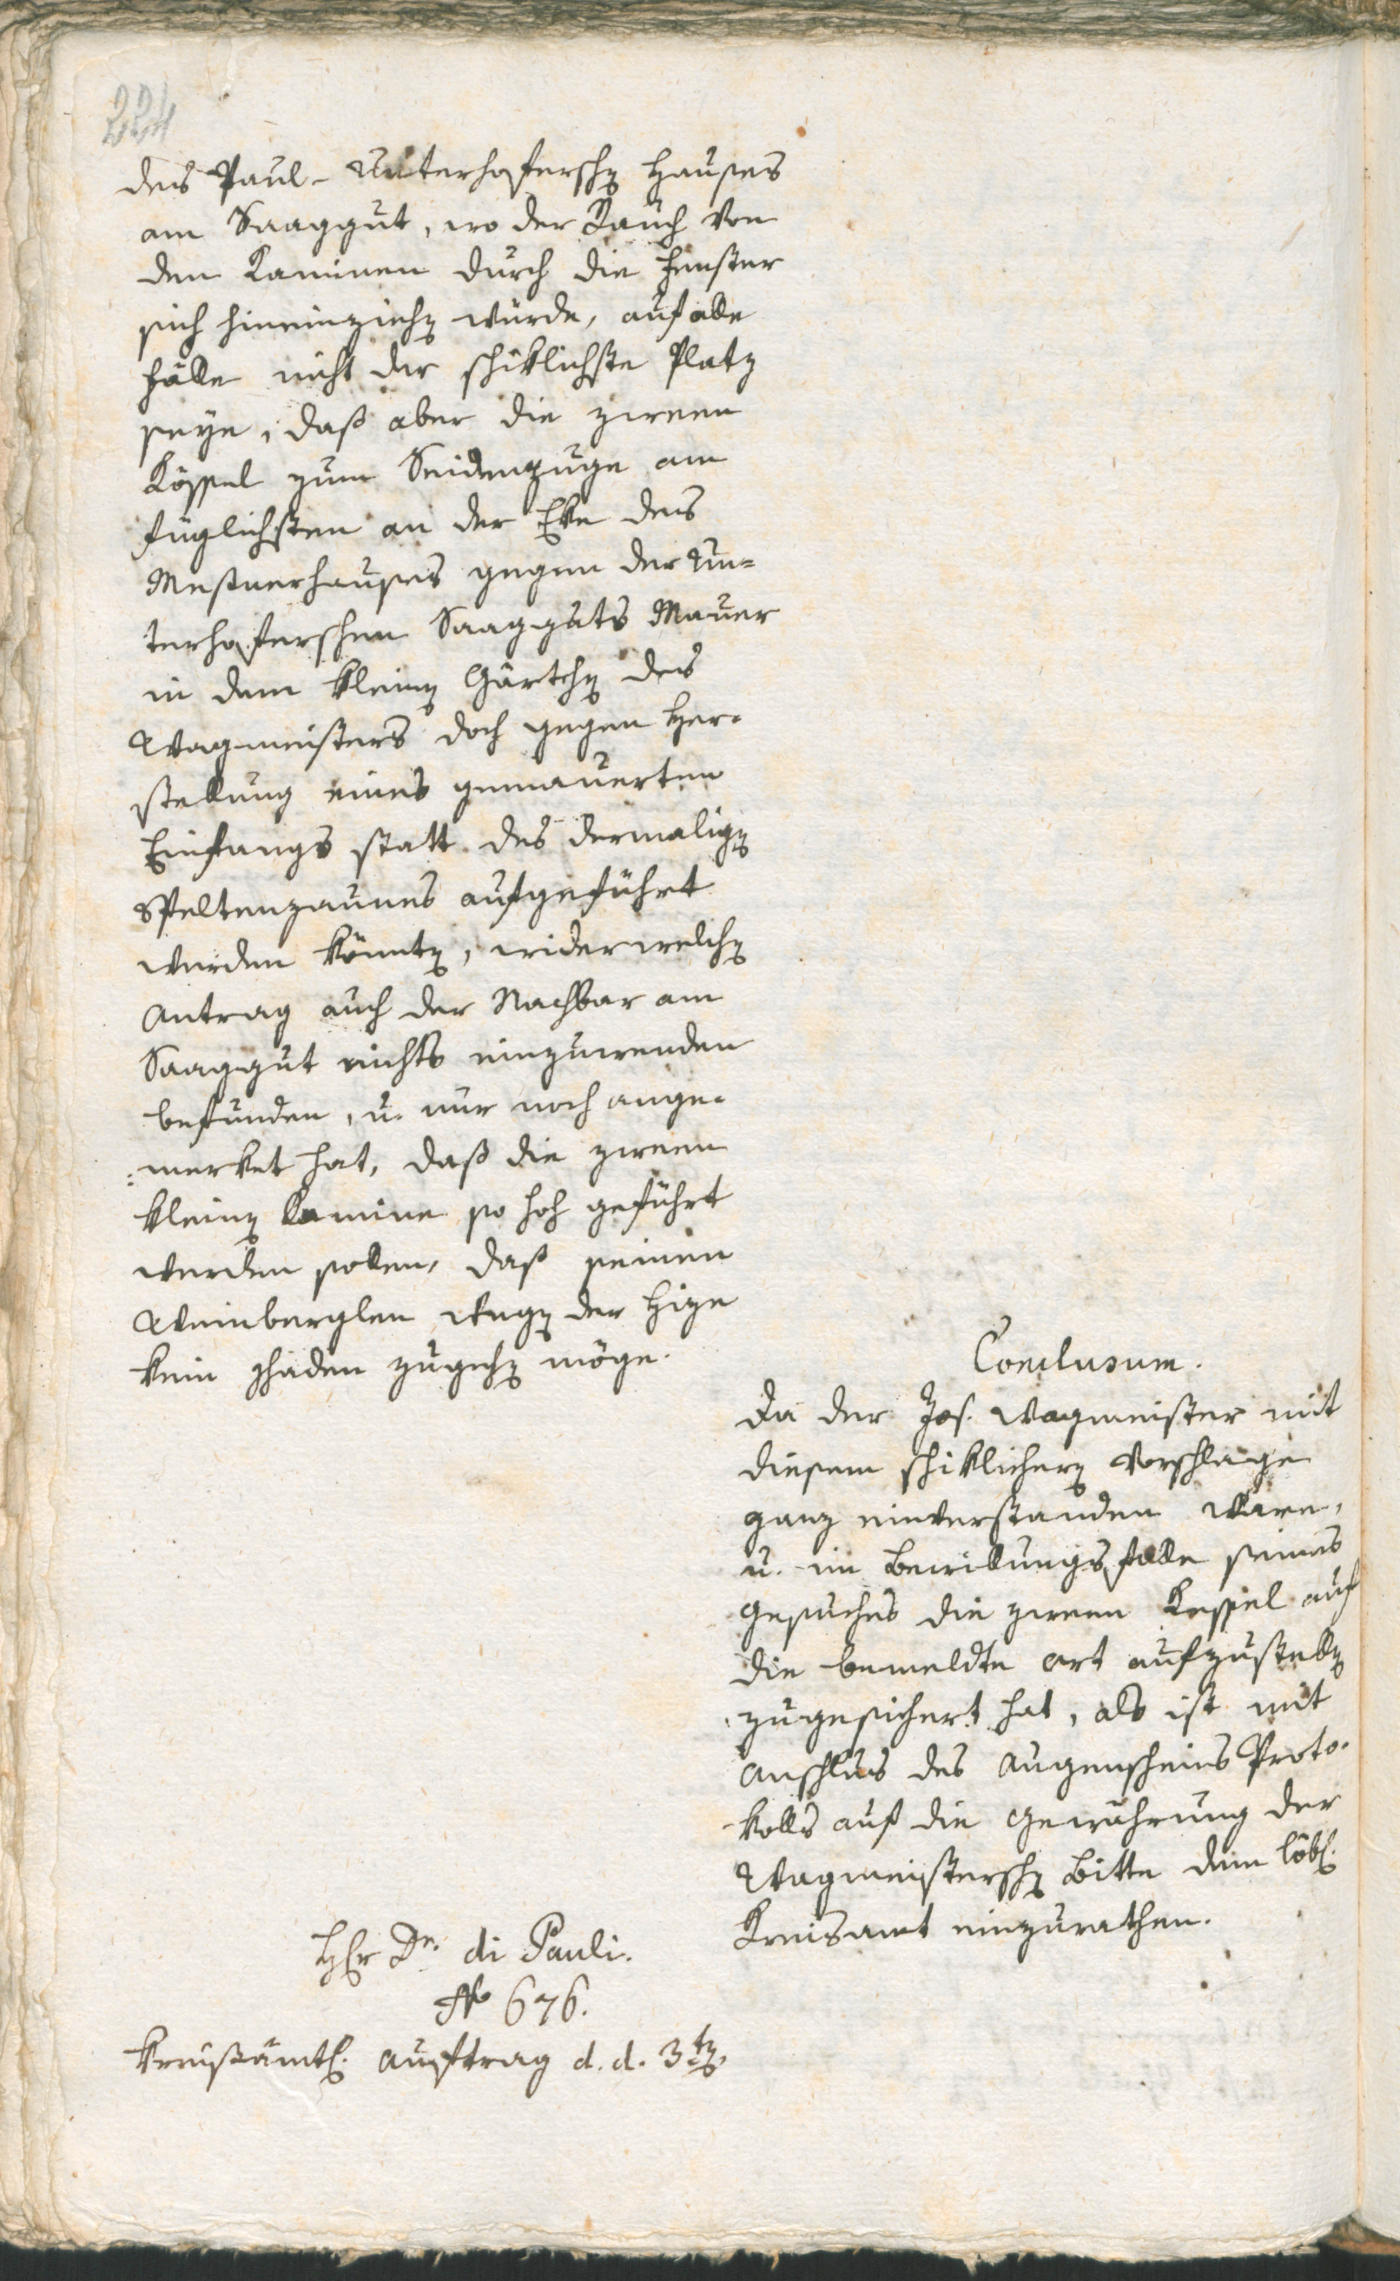 224
des Paul-Unterhoferschen Hauses
am Saaggut, wo der Rauch von
den Kaminen durch die Fenster
sich hineinziehen würde, auf alle
Fälle nicht der schiklichste Platz
seye, daß aber die zween
Kössel zum Seidenzuge am
füglichsten an der Eke des
Meßnerhauses gegen der Un=
terhoferschen Saagguts Mauer
in dem kleinen Gärtchen des
Wagmeisters doch gegen Her=
stellung eines gemauerten
Einfangs statt des dermaligen
Speltenzaunes aufgeführt
werden könnten, wider welchen
Antrag auch der Nachbar am
Saaggut nichts einzuwenden
befunden, u. nur noch ange=
=merket hat, daß die zween
kleinen Kamine so hoh geführt
werden sollen, daß seinen
Weinberglen wegen der Hize
kein Schaden zugehen möge.
Conclusum.
Da der Jos. Wagmeister mit
diesem schiklichern Vorschlage
ganz einverstanden ware,
u. im Bewillungsfalle seines
Gesuches die zween Kessel auf
die bemeldte Art aufzustellen
zugesichert hat, als ist mit
Anschlus des Augenscheins Proto=
kolls auf die Gewährung der
Wagmeisterschen Bitte dem löbl.
Kreisamt einzurathen.
Hr Dr. di Pauli.
No 676.
Kreißämtl. Auftrag d. d. 3ten